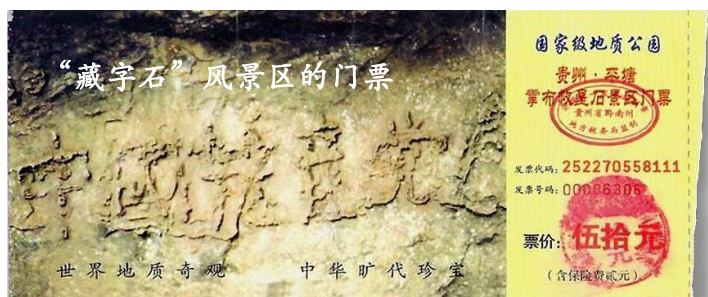 “藏字石”风景区的门票
中國共产党
世界地质奇观 中华旷代珍宝
国家级地质公园
贵州·平塘
掌布救星石景区门票
贵州省黔南州
地方税务局监制
发票代码:252270558111
发票号码:00006306
票价:伍拾元
(含保险费贰元)